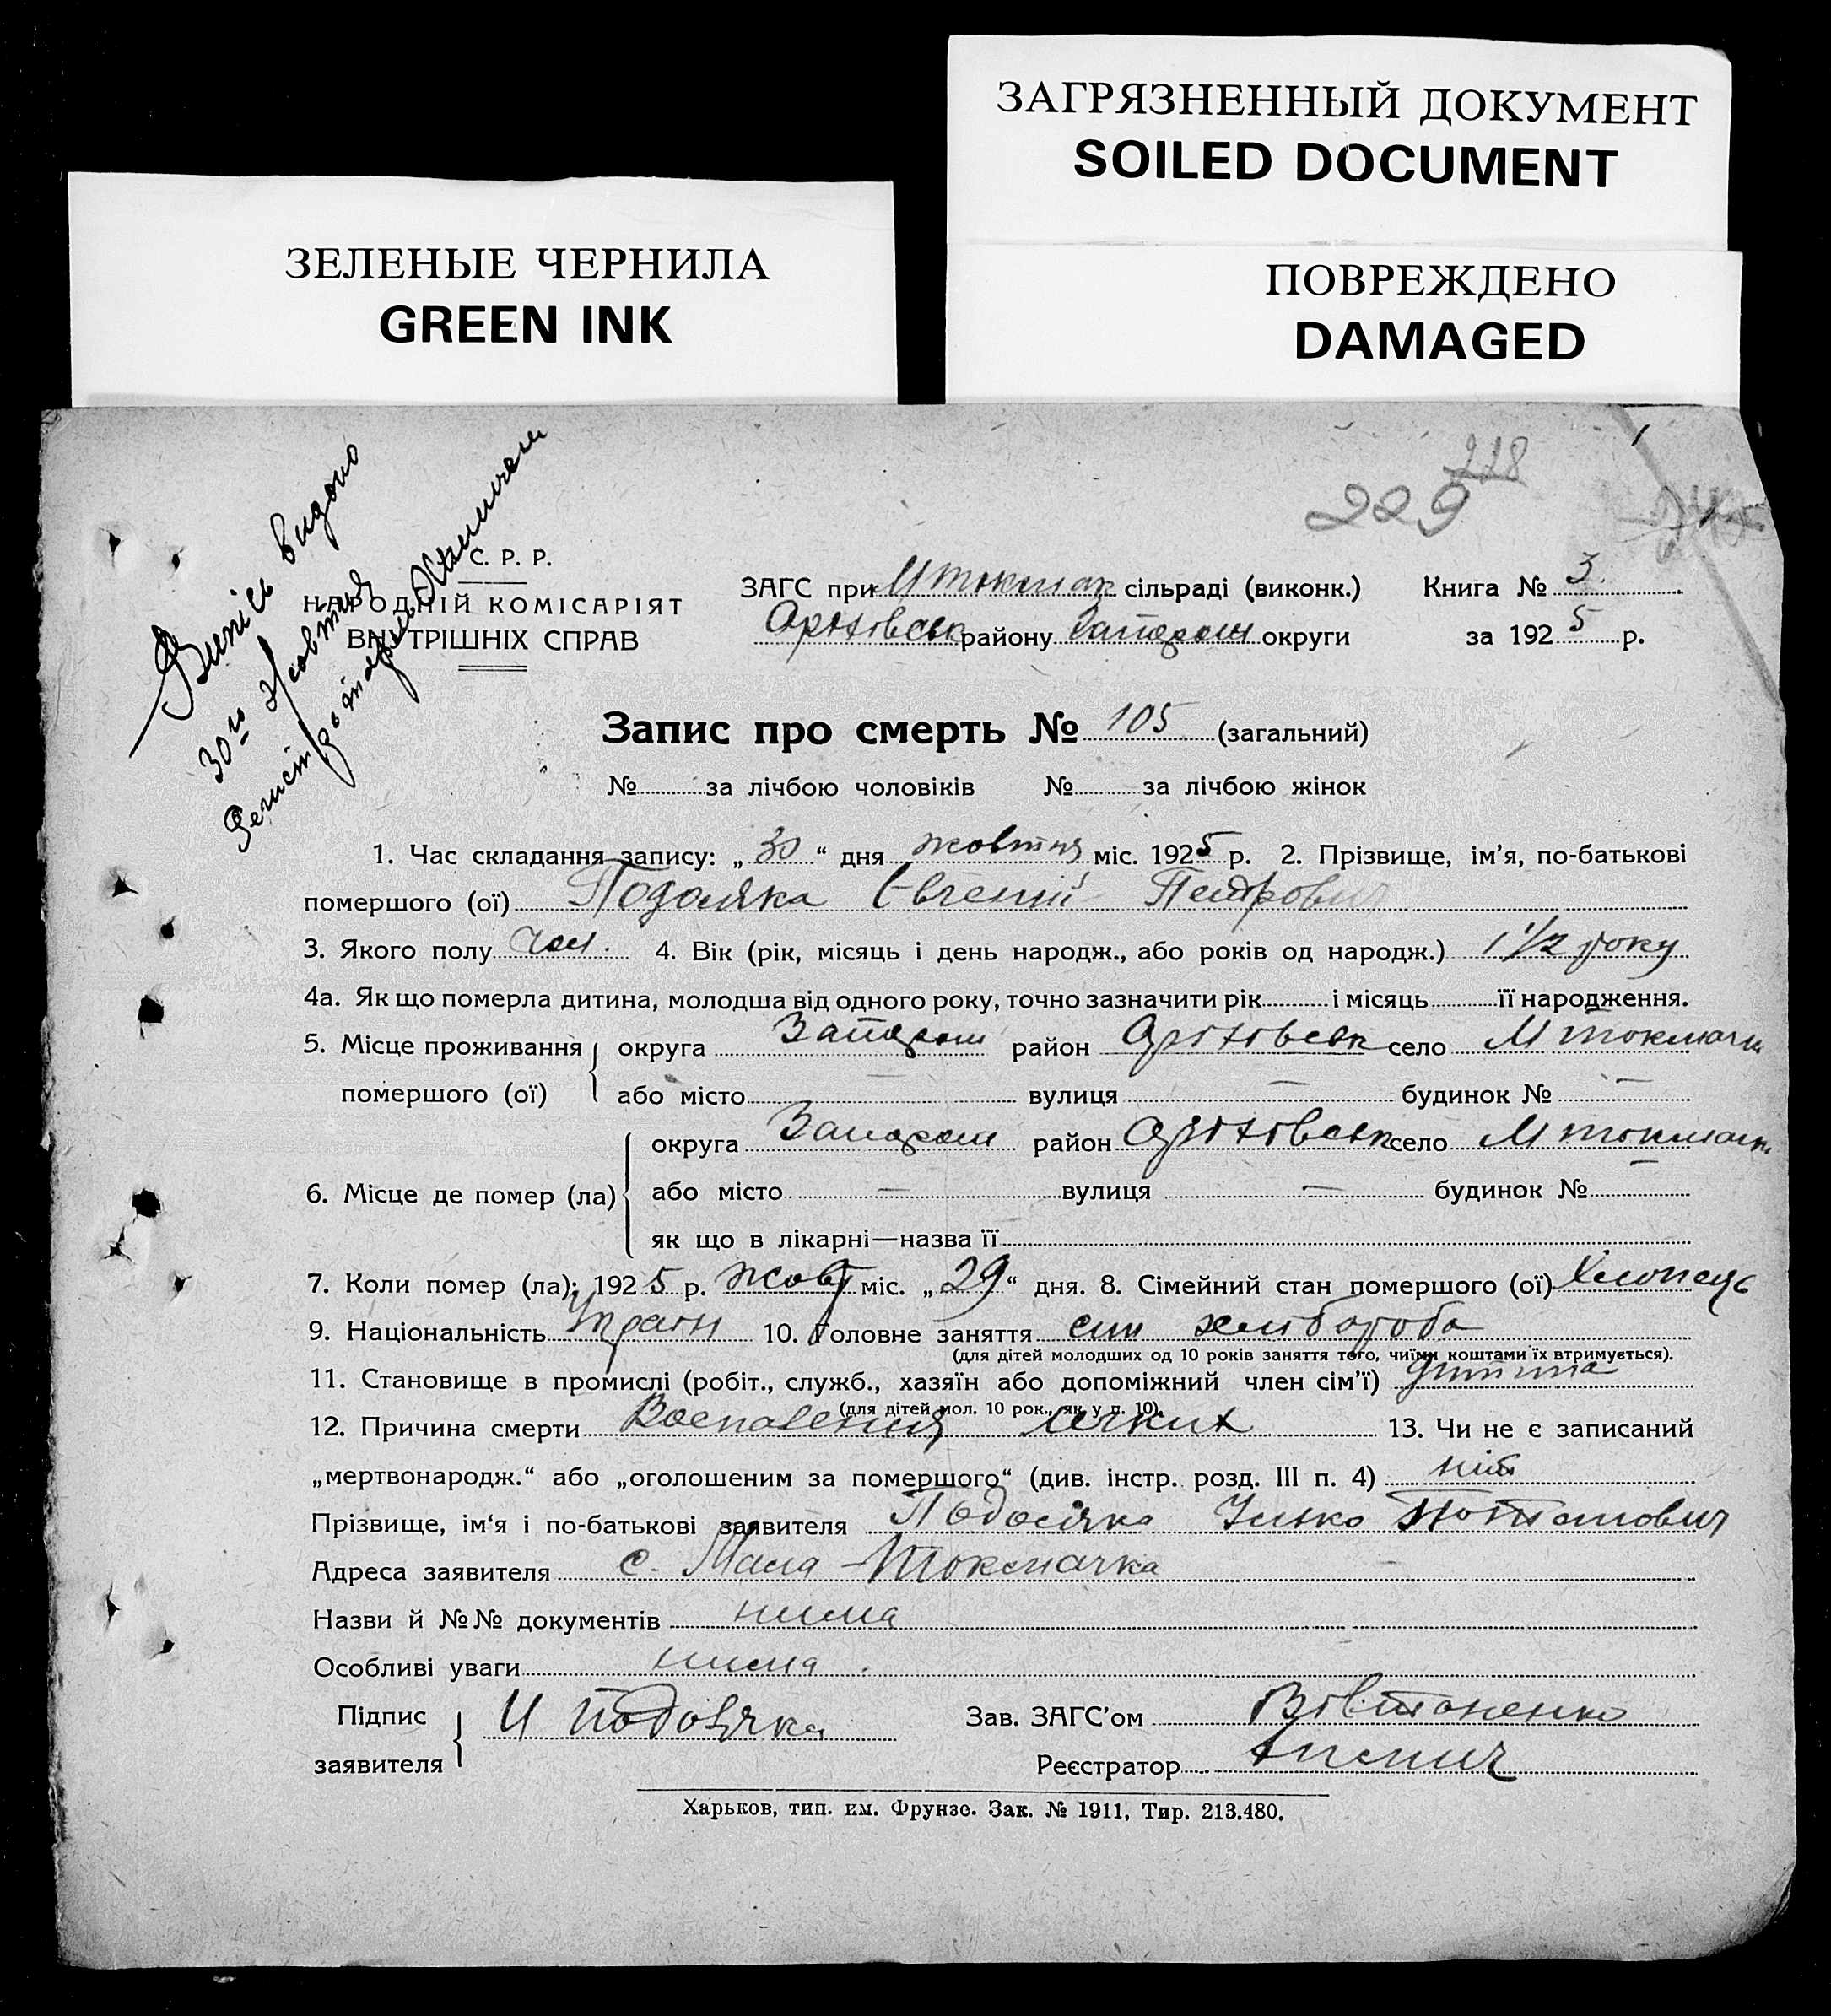 ЗАГРЯЗНЕННЫЙ ДОКУМЕНТ
SOILED DOCUMENT
ЗЕЛЕНЫЕ ЧЕРНИЛА
GREEN INK
ПОВРЕЖДЕНО
DAMAGED
Випісь видано
30го жовтня
228
229
С. Р. Р.
НАРОДНІЙ КОМІСАРІЯТ
ВНУТРІШНІХ СПРАВ
ЗАГС при М токмак сільраді (виконк.) Книга № 3
Оріхівськ району Запорож округи за 1925 р.
Запис про смерть № 105 (загальний)
№ за лічбою чоловіків № за лічбою жінок
1. Час складання запису: „30“ дня жовтня міс. 1925 р. 2. Прізвище, ім’я, по-батькові
помершого (ої) Подоляка Євгеній Петрович
3. Якого полу чол. 4. Вік (рік, місяць і день народж., або років од народж.) 1 1/2 року
4а. Як що померла дитина, молодша від одного року, точно зазначити рік і місяць її народження.
5. Місце проживання округа Запорож район Оріхівськ село М токмачк
помершого (ої) або місто — вулиця — будинок № —
округа Запорож район Оріхівськ село М токмачк
6. Місце де помер (ла) або місто — вулиця — будинок № —
як що в лікарні—назва її
7. Коли помер (ла): 1925 р. жовт міс. „29“ дня. 8. Сімейний стан помершого (ої) Хлопець
9. Національність Україн 10. Головне заняття син хлібороба
(для дітей молодших од 10 років заняття того, чиїми коштами їх втримується).
11. Становище в промислі (робіт., служб., хазяїн або допоміжний член сім’ї) дитина
(для дітей мол. 10 рок., як у п. 10).
12. Причина смерти Воспаления легких 13. Чи не є записаний
„мертвонародж.“ або „оголошеним за помершого“ (див. інстр. розд. III п. 4) ніт
Прізвище, ім‘я і по-батькові заявителя Подоляка Улько Потапович
Адреса заявителя с. Мала-Токмачка
Назви й №№ документів нима
Особливі уваги нима
Підпис И Подоляка Зав. ЗАГС’ом Вівтоненко
заявителя Реєстратор
Харьков, тип. им. Фрунзе. Зак. № 1911, Тир. 213.480.